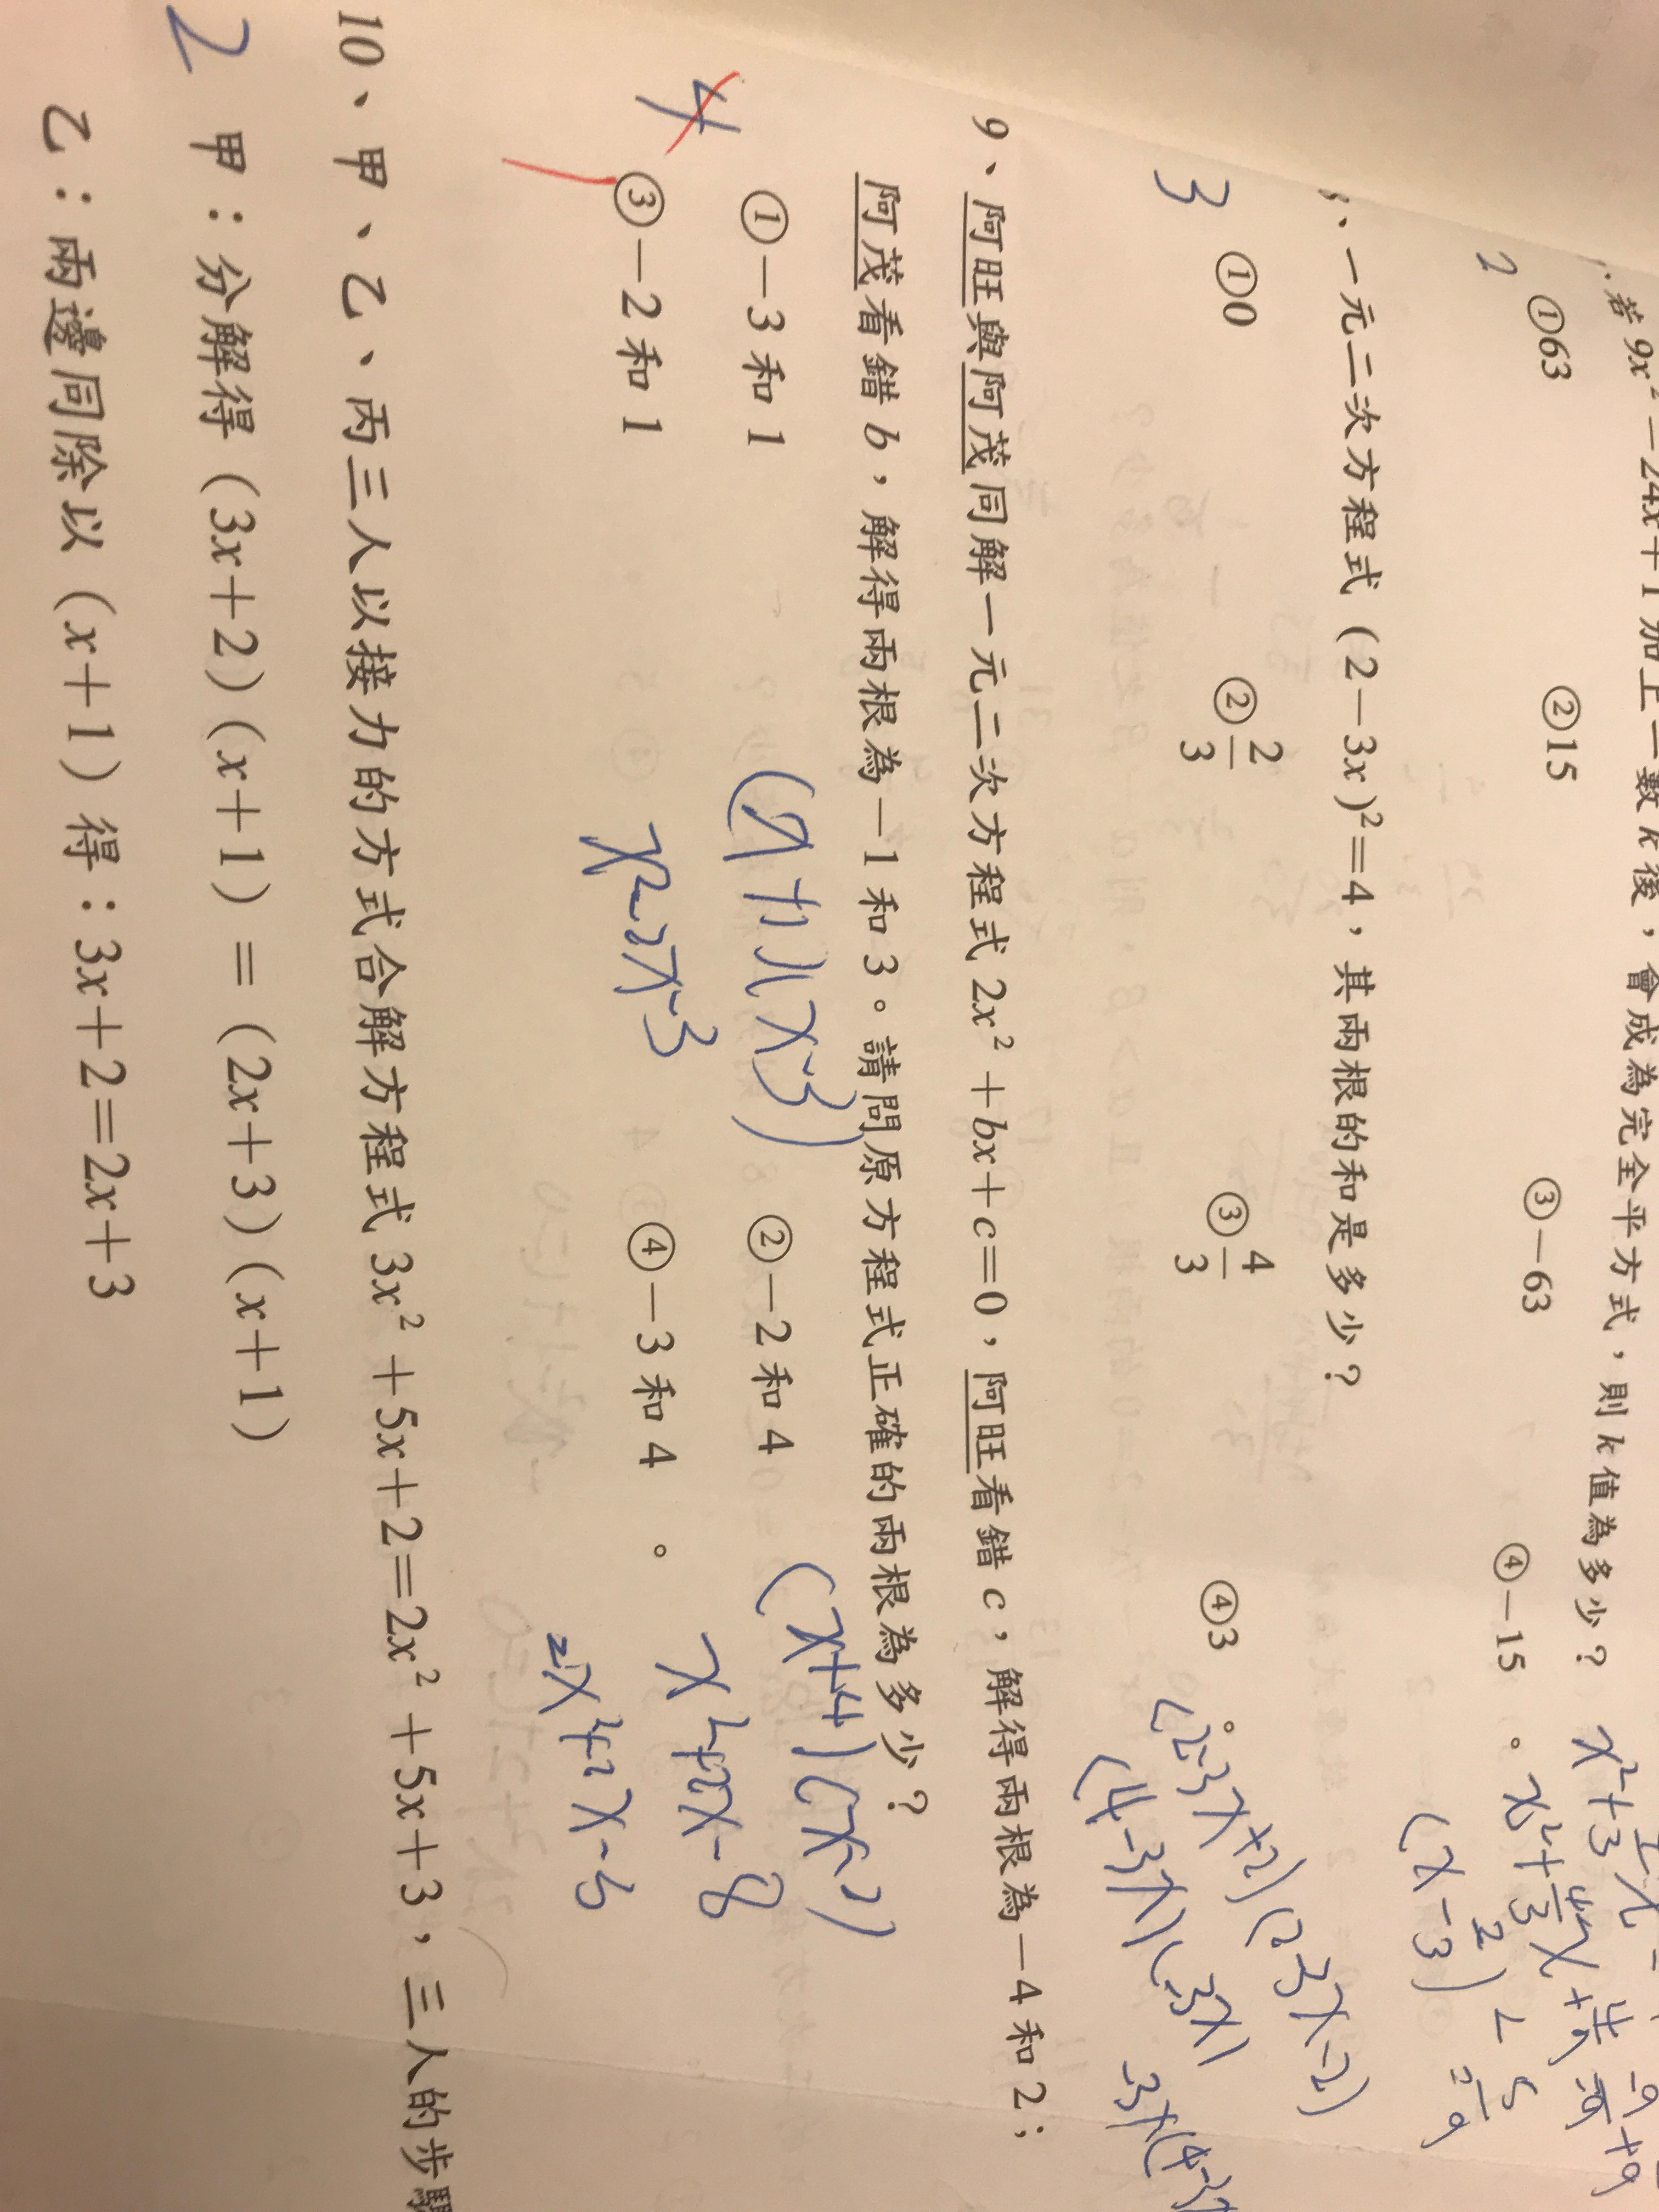 若 9x²－24x＋1 加上一數 k 後，會成為完全平方式，則 k 值為多少？
2 ①63 ②15 ③－63 ④－15 。
、一元二次方程式（2－3x）²＝4，其兩根的和是多少？
3 ①0 ②2/3 ③4/3 ④3 。
(2-3x+2)(2-3x-2)
(4-3x)(-3x)
9、阿旺與阿茂同解一元二次方程式 2x²＋bx＋c＝0，阿旺看錯 c，解得兩根為－4 和 2；
阿茂看錯 b，解得兩根為－1 和 3。請問原方程式正確的兩根為多少？
4 ①－3 和 1 ②－2 和 4
③－2 和 1 ④－3 和 4 。
(x+1)(x-3)
x²-2x-3
(x+4)(x-2)
x²+2x-8
x²+2x-3
10、甲、乙、丙三人以接力的方式合解方程式 3x²＋5x＋2＝2x²＋5x＋3，三人的步驟
2 甲：分解得（3x＋2）（x＋1）＝（2x＋3）（x＋1）
乙：兩邊同除以（x＋1）得：3x＋2＝2x＋3